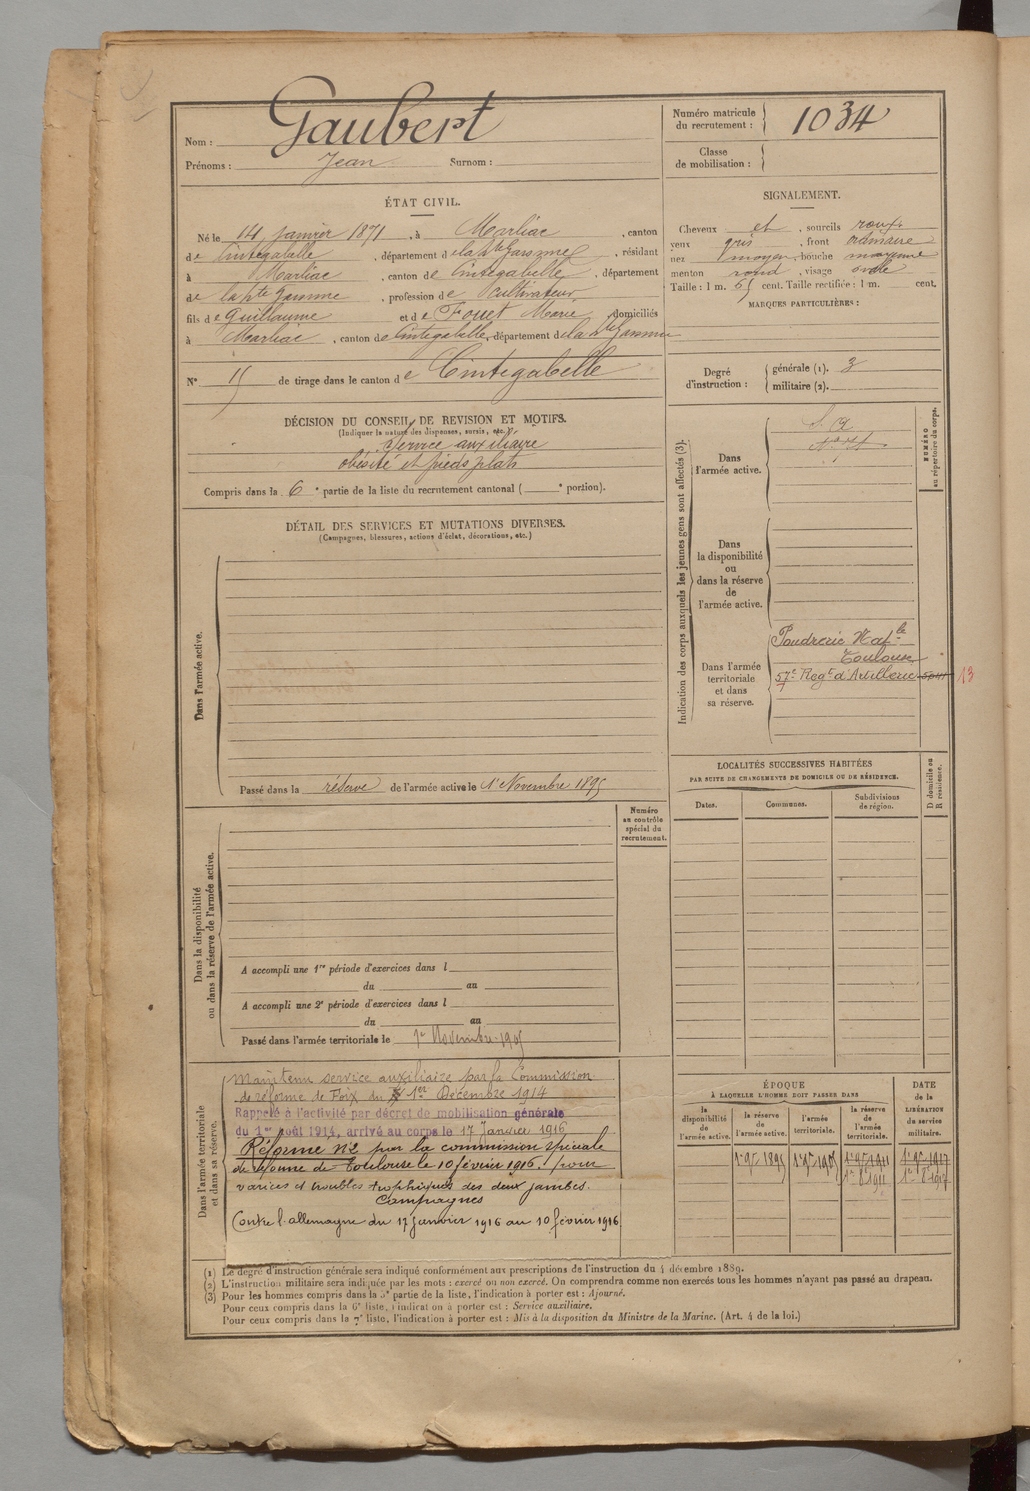 Nom : Gaubert
Prénoms : Jean Surnom :
Numéro matricule
du recrutement : 1034
Classe
de mobilisation :
ÉTAT CIVIL.
Né le 14 janvier 1871, à Marliac, canton
de Cintegabelle, département de la Hte Garonne, résidant
à Marliac, canton de Cintegabelle, département
de la Hte Garonne, profession de cultivateur
fils de Guillaume et de Fouet Marie, domiciliés
à Marliac, canton de Cintegabelle, département de la Hte Garonne
N° 15 de tirage dans le canton de Cintegabelle
SIGNALEMENT.
Cheveux et, sourcils roux
yeux gris, front ordinaire
nez moyen, bouche moyenne
menton rond, visage ovale
Taille : 1 m. 65 cent. Taille rectifiée : 1 m. cent.
MARQUES PARTICULIÈRES :
Degré
d'instruction :
générale (1). 3
militaire (2).
DÉCISION DU CONSEIL DE REVISION ET MOTIFS.
(Indiquer la nature des dispenses, sursis, etc.)
Service auxiliaire
obésité et pieds plats
Compris dans la 6e partie de la liste du recrutement cantonal ( e portion).
DÉTAIL DES SERVICES ET MUTATIONS DIVERSES.
(Campagnes, blessures, actions d'éclat, décorations, etc.)
Dans l'armée active.
Passé dans la réserve de l'armée active le 1er Novembre 1895
Indication des corps auxquels les jeunes gens sont affectés (3).
NUMÉRO
au répertoire du corps.
Dans
l'armée active.
Dans
la disponibilité
ou
dans la réserve
de
l'armée active.
Dans l'armée
territoriale
et dans
sa réserve.
Poudrerie Natle
Toulouse
57e Regt d'Artillerie 13
LOCALITÉS SUCCESSIVES HABITÉES
PAR SUITE DE CHANGEMENTS DE DOMICILE OU DE RÉSIDENCE.
Dates.
Communes.
Subdivisions
de région.
D domicile ou
R résidence.
Dans la disponibilité
ou dans la réserve de l'armée active.
Numéro
au contrôle
spécial du
recrutement.
A accompli une 1re période d'exercices dans l
du au
A accompli une 2e période d'exercices dans l
du au
Passé dans l'armée territoriale le 1er Novembre 1905
Dans l'armée territoriale
et dans sa réserve.
Maintenu service auxiliaire par la Commission
de réforme de Foix du 1er Décembre 1914
Rappelé à l'activité par décret de mobilisation générale
du 1er août 1914, arrivé au corps le 17 Janvier 1916
Réformé n°2 par la commission spéciale
de réforme de Toulouse le 10 février 1916. pour
varices et troubles trophiques des deux jambes.
Campagnes
Contre l'allemagne du 17 janvier 1916 au 10 février 1916
ÉPOQUE
À LAQUELLE L'HOMME DOIT PASSER DANS
la
disponibilité
de
l'armée active.
la réserve
de
l'armée active.
l'armée
territoriale.
la réserve
de
l'armée
territoriale.
DATE
de la
LIBÉRATION
du service
militaire.
1er 9bre 1895 1er 9bre 1905 1er 9bre 1911 1er 9bre 1917
1er 8bre 1911 1er 8bre 1917
(1) Le degré d'instruction générale sera indiqué conformément aux prescriptions de l'instruction du 4 décembre 1889.
(2) L'instruction militaire sera indiquée par les mots : exercé ou non exercé. On comprendra comme non exercés tous les hommes n'ayant pas passé au drapeau.
(3) Pour les hommes compris dans la 5e partie de la liste, l'indication à porter est : Ajourné.
Pour ceux compris dans la 6e liste, l'indication à porter est : Service auxiliaire.
Pour ceux compris dans la 7e liste, l'indication à porter est : Mis à la disposition du Ministre de la Marine. (Art. 4 de la loi.)